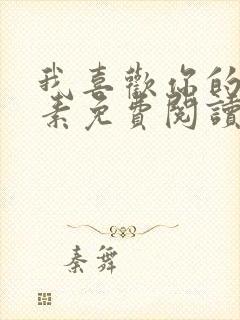 我喜歡你的
素免費閱讀
秦舞